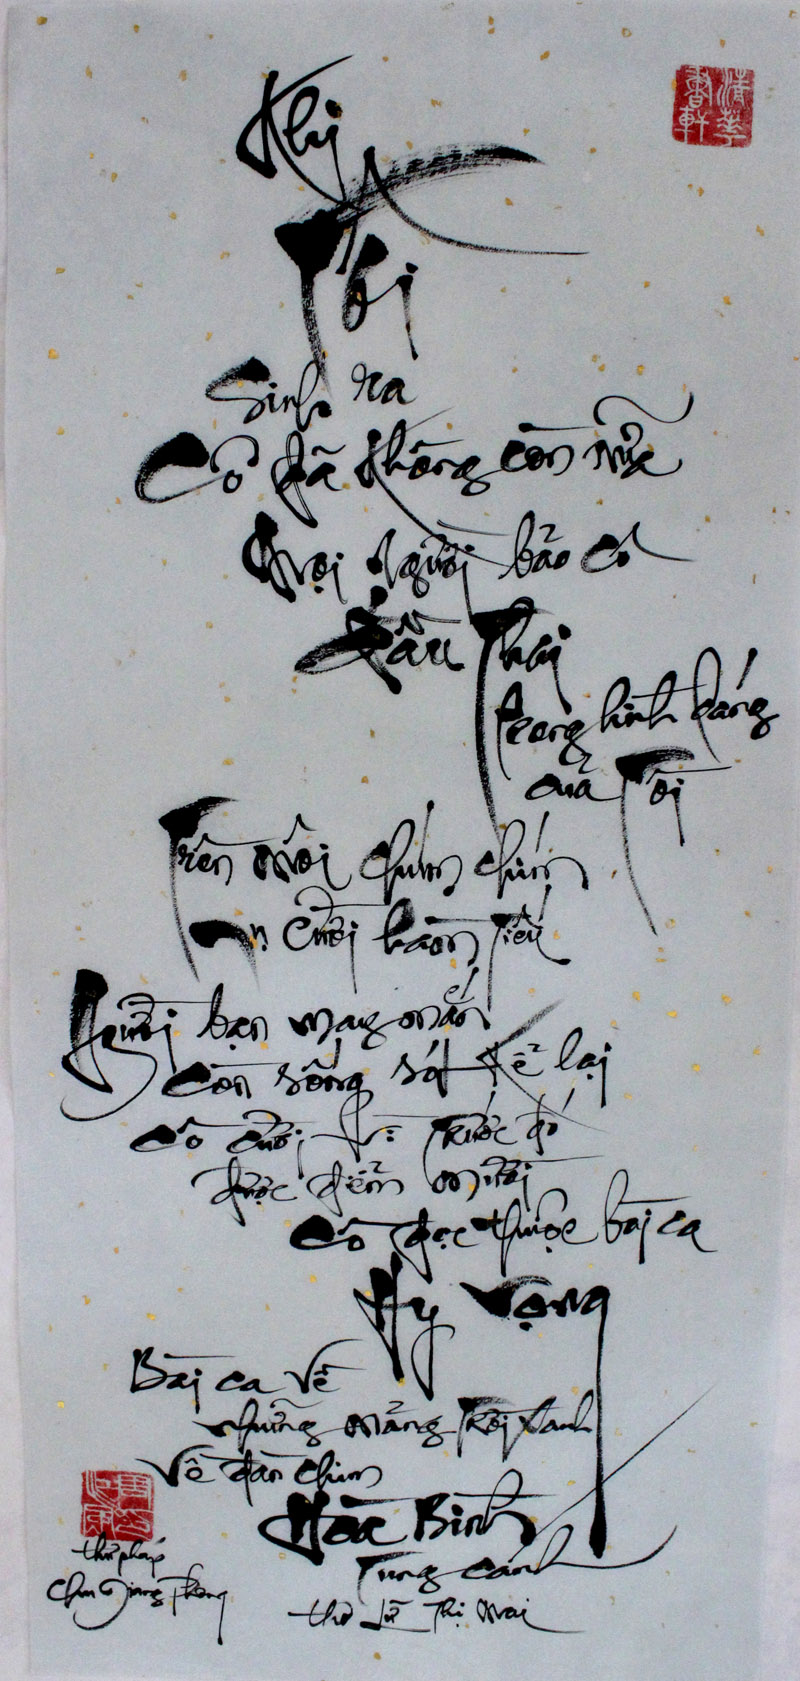 清華
書軒
Khi
Tôi
Sinh ra
Cô đã không còn nữa
Mọi người bảo cô
Đầu Thai
trong hình dáng
của Tôi
Trên môi chúm chím
nụ cười hàm tiếu
Người bạn may mắn
còn sống sót kể lại
cô cười vì trước đó
được điểm mười
Cô đọc thuộc bài ca
Hy Vọng
Bài ca về
những mảng trời xanh
về đàn chim
Hòa Bình
Tung cánh
thơ Lữ Thị Mai
thư pháp
Chu Giang Phong